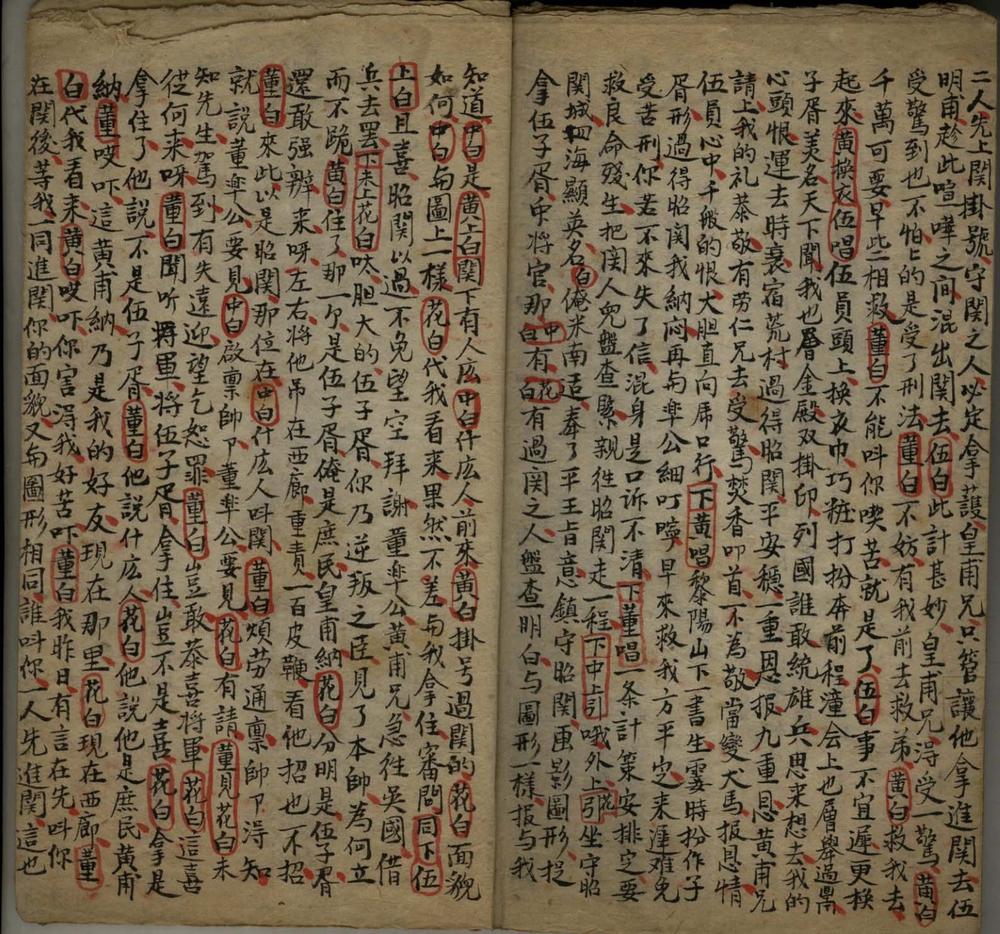 二人先上関掛號守関之人必定拿護皇甫兄只管讓他拿進関去伍
明甫趁此喧嘩之间混出関去伍白此計甚妙皇甫兄淂受一驚黄白
受驚到也不怕上的是受了刑法董白不妨有我前去救弟黄白救我去
千萬可要早些相救董白不能呌你喫苦就是了伍白事不宜遲更換
起來黄换衣伍唱伍員頭上换衣巾巧粧打扮奔前程潼会上也層舉過鼎
子胥美名天下聞我也層金殿双掛印列國誰敢統雄兵思来想去我的
心頭恨運去時衰宿荒村過得昭関平安穏一重恩报九重恩黄甫兄
請上我的礼恭敬有劳仁兄去受驚焚香叩首不為敬當變犬馬报恩情
伍員心中千般的恨大胆直向席口行下黄唱黎陽山下一書生霎時扮作子
胥形過得昭関我納闷再与皐公細叮嚀早來救我方平定来遲难免
受苦刑你若不來失了信混身是口訴不清下董唱一条計策安排定要
救良命殘生把関人児盤查緊親徃昭関走一程下中上引哦外上引坐守昭
関城四海顯英名白俺米南适奉了平王旨意鎮守昭関画影圖形捉
拿伍子胥中将官那中白有花白有過関之人盤查明白与圖形一樣报与我
知道中白是黄上白関下有人庅中白什庅人前來黄白掛号過関的花白面貌
如何中白与圖上一樣花白代我看来果然不差与我拿住審問同下伍
上白且喜昭関以過不免望空拜謝董皐公黄甫兄急徃吳國借
兵去罢下末上花白呔胆大的伍子胥你乃逆叛之臣見了本帥為何立
而不跪黄白住了那一个是伍子胥俺是庶民皇甫納花白分明是伍子胥
還敢强辨来呀左右将他吊在西廊重責一百皮鞭看他招也不招
董白來此以是昭関那位在中白什庅人呌関董白煩劳通禀帥卩淂知
就說董皐公要見中白啟禀帥卩董皐公要見花白有請董見花白未
知先生駕到有失遠迎望乞恕罪董白豈敢恭喜将軍花白這喜
從何来呀董白聞听將軍将伍子胥拿住豈不是喜花白拿是
拿住了他說不是伍子胥董白他說什庅人花白他說他是庶民黄甫
納董哎吓這黄甫納乃是我的好友現在那里花白現在西廊董
白代我看来黄白哎吓你害淂我好苦吓董白我昨日有言在先呌你
在関後等我一同進関你的面貌又与圖形相同誰呌你一人先進関這也